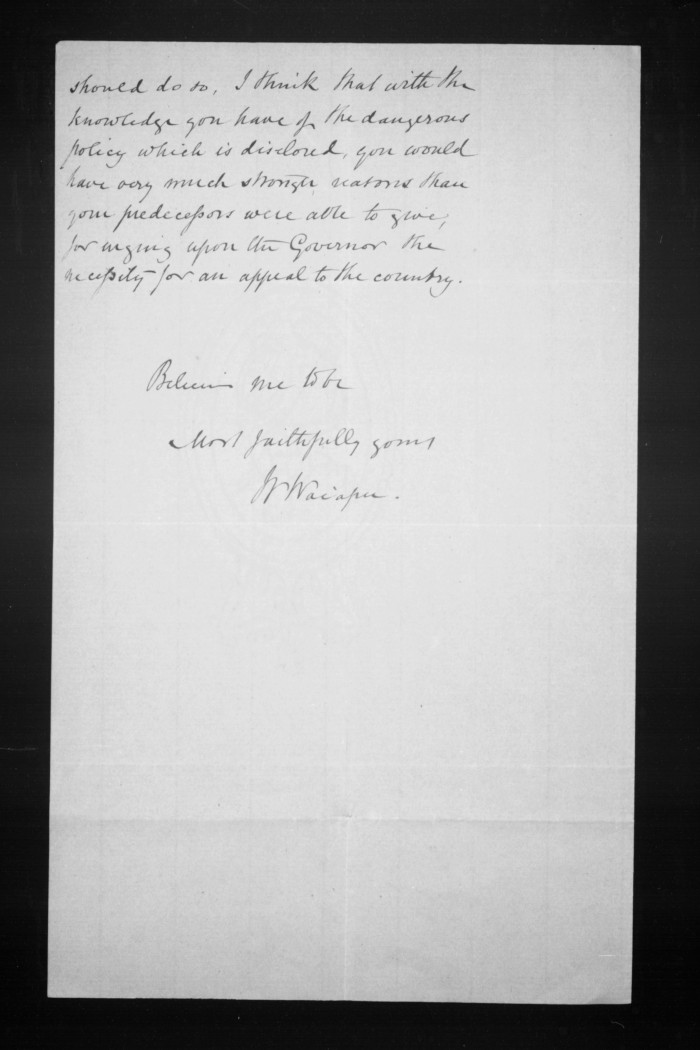 should do so, I think that with the
knowledge you have of the dangerous
policy which is disclosed, you would
have very much stronger reasons than
your predecessors were able to give,
for urging upon the Governor the
necessity for an appeal to the country.
Believe me to be
Most faithfully yours
W Waiapu.